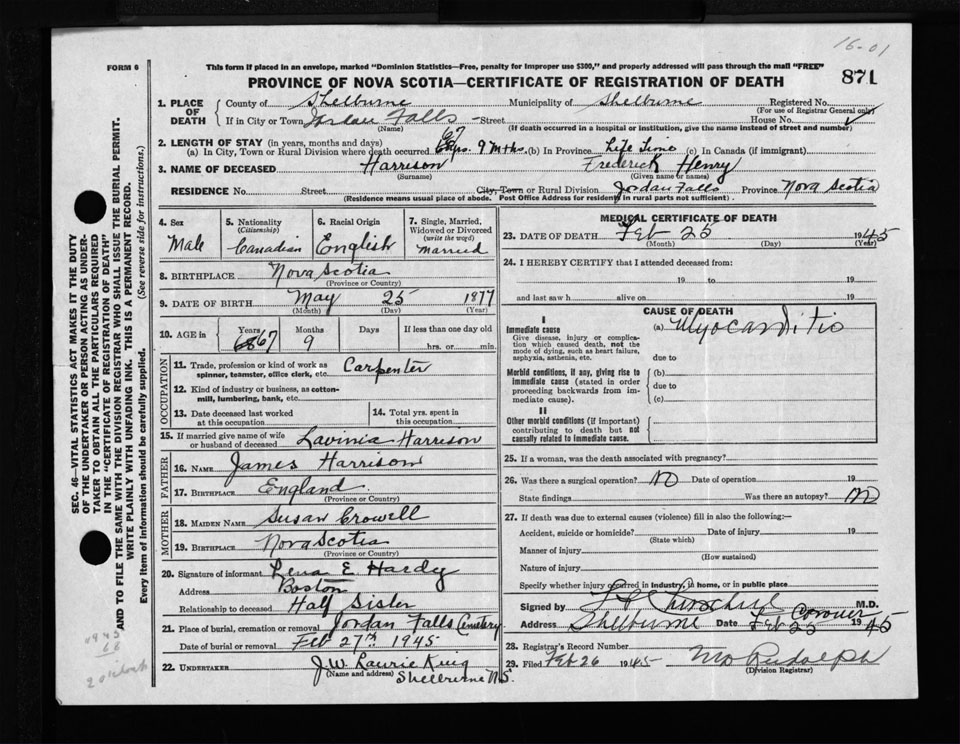 16-01
FORM 6
This form if placed in an envelope, marked "Dominion Statistics—Free, penalty for improper use $300," and properly addressed will pass through the mail "FREE"
PROVINCE OF NOVA SCOTIA—CERTIFICATE OF REGISTRATION OF DEATH
871
1. PLACE OF DEATH
County of Shelburne Municipality of Shelburne Registered No.
(For use of Registrar General only)
If in City or Town Jordan Falls Street House No.
(Name) (If death occurred in a hospital or institution, give the name instead of street and number)
2. LENGTH OF STAY (in years, months and days)
(a) In City, Town or Rural Division where death occurred 67 yrs. 9 Mths. (b) In Province Life Time (c) In Canada (if immigrant)
3. NAME OF DECEASED Harrison Frederick Henry
(Surname) (Given name or names)
RESIDENCE No. Street City, Town or Rural Division Jordan Falls Province Nova Scotia
(Residence means usual place of abode. Post Office Address for residents in rural parts not sufficient)
4. Sex
Male
5. Nationality
(Citizenship)
Canadian
6. Racial Origin
English
7. Single, Married, Widowed or Divorced
(write the word)
Married
8. BIRTHPLACE Nova Scotia
(Province or Country)
9. DATE OF BIRTH May 25 1877
(Month) (Day) (Year)
10. AGE in
Years Months Days If less than one day old
68 67 9 hrs. or min.
OCCUPATION
11. Trade, profession or kind of work as spinner, teamster, office clerk, etc. Carpenter
12. Kind of industry or business, as cotton-mill, lumbering, bank, etc.
13. Date deceased last worked at this occupation
14. Total yrs. spent in this occupation
15. If married give name of wife or husband of deceased Lavinia Harrison
FATHER
16. NAME James Harrison
17. BIRTHPLACE England
(Province or Country)
MOTHER
18. MAIDEN NAME Susan Crowell
19. BIRTHPLACE Nova Scotia
(Province or Country)
20. Signature of informant Lena E. Hardy
Address Boston
Relationship to deceased Half Sister
21. Place of burial, cremation or removal Jordan Falls Cemetery
Date of burial or removal Feb 27th 1945
22. UNDERTAKER J. W. Laurie King
(Name and address) Shelburne N.S.
MEDICAL CERTIFICATE OF DEATH
23. DATE OF DEATH Feb 25 1945
(Month) (Day) (Year)
24. I HEREBY CERTIFY that I attended deceased from:
19 to 19
and last saw h alive on 19
CAUSE OF DEATH
I
Immediate cause
Give disease, injury or complication which caused death, not the mode of dying, such as heart failure, asphyxia, asthenia, etc.
(a) Myocarditis
due to
Morbid conditions, if any, giving rise to immediate cause (stated in order proceeding backwards from immediate cause).
(b)
due to
(c)
II
Other morbid conditions (if important) contributing to death but not causally related to immediate cause.
25. If a woman, was the death associated with pregnancy?
26. Was there a surgical operation? No Date of operation 19
State findings Was there an autopsy? No
27. If death was due to external causes (violence) fill in also the following:—
Accident, suicide or homicide? Date of injury 19
(State which)
Manner of injury
(How sustained)
Nature of injury
Specify whether injury occurred in industry, in home, or in public place
Signed by Churchill M.D.
Coroner
Address Shelburne Date Feb 25 1945
28. Registrar's Record Number
29. Filed Feb 26 1945 Rudolph
(Division Registrar)
SEC. 46—VITAL STATISTICS ACT MAKES IT THE DUTY
OF THE UNDERTAKER OR PERSON ACTING AS UNDERTAKER TO OBTAIN ALL THE PARTICULARS REQUIRED
IN THE "CERTIFICATE OF REGISTRATION OF DEATH"
AND TO FILE THE SAME WITH THE DIVISION REGISTRAR WHO SHALL ISSUE THE BURIAL PERMIT.
WRITE PLAINLY WITH UNFADING INK. THIS IS A PERMANENT RECORD.
Every item of information should be carefully supplied. (See reverse side for instructions.)
1945